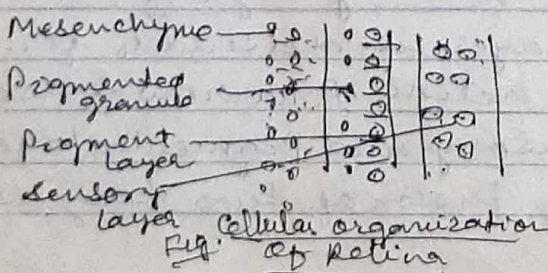 Mesenchyme
Pigmented
granule
Pigment
Layer
sensory
Layer
Fig. Cellular organization
of Retina